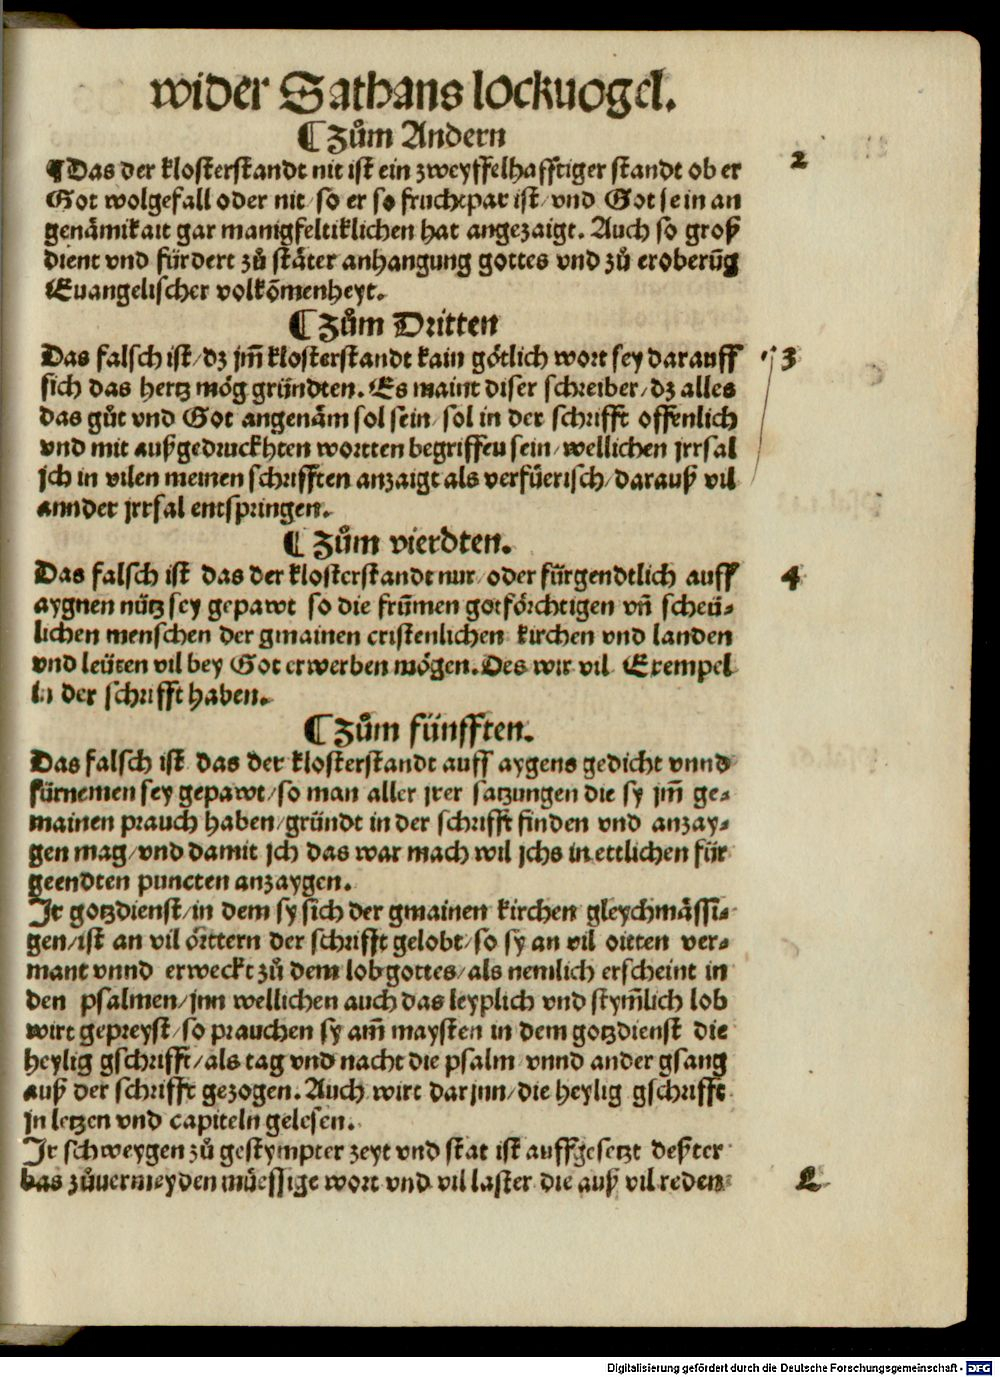 wider Sathans lockuogel.
¶ Zům Andern
¶ Das der klosterstandt nit ist ein zweyffelhafftiger standt ob er
2
Got wolgefall oder nit / so er so fruchtpar ist / vnd Got sein an
genämikait gar manigfeltiklichen hat angezaigt. Auch so groß
dient vnd fürdert zů stäter anhangung gottes vnd zů eroberũg
Euangelischer volkõmenheyt.
¶ Zům Dritten
Das falsch ist / dz jm̃ klosterstandt kain götlich wort sey darauff
3
sich das hertz mög gründten. Es maint diser schreiber / dz alles
das gůt vnd Got angenäm sol sein / sol in der schrifft offenlich
vnd mit außgedruckhten wortten begriffen sein / wellichen jrrsal
jch in vilen meinen schrifften anzaigt als verfüerisch / darauß vil
annder jrrsal entspringen.
¶ Zům vierdten.
Das falsch ist das der klosterstandt nur / oder fürgendtlich auff
4
aygnen nütz sey gepawt so die frũmen gotförchtigen vñ scheü⸗
lichen menschen der gmainen cristenlichen kirchen vnd landen
vnd leüten vil bey Got erwerben mögen. Des wir vil Exempel
in der schrifft haben.
¶ Zům fünfften.
Das falsch ist das der klosterstandt auff aygens gedicht vnnd
fürnemen sey gepawt / so man aller jrer satzungen die sy jm̃ ge⸗
mainen prauch haben / gründt in der schrifft finden vnd anzay⸗
gen mag / vnd damit jch das war mach wil jchs in ettlichen für
geendten puncten anzaygen.
Jr gotzdienst / in dem sy sich der gmainen kirchen gleychmässi⸗
gen / ist an vil örttern der schrifft gelobt / so sy an vil ortten ver⸗
mant vnnd erweckt zů dem lob gottes / als nemlich erscheint in
den psalmen / jnn wellichen auch das leyplich vnd stym̃lich lob
wirt gepreyst / so prauchen sy am̃ maysten in dem gotzdienst die
heylig gschrifft / als tag vnd nacht die psalm vnnd ander gsang
auß der schrifft gezogen. Auch wirt dar jnn / die heylig gschrifft
jn letzen vnd capiteln gelesen.
Jr schweygen zů gestympter zeyt vnd stat ist auffgesetzt dester
bas zůuermeyden müessige wort vnd vil laster die auß vil reden
Digitalisierung gefördert durch die Deutsche Forschungsgemeinschaft - DFG